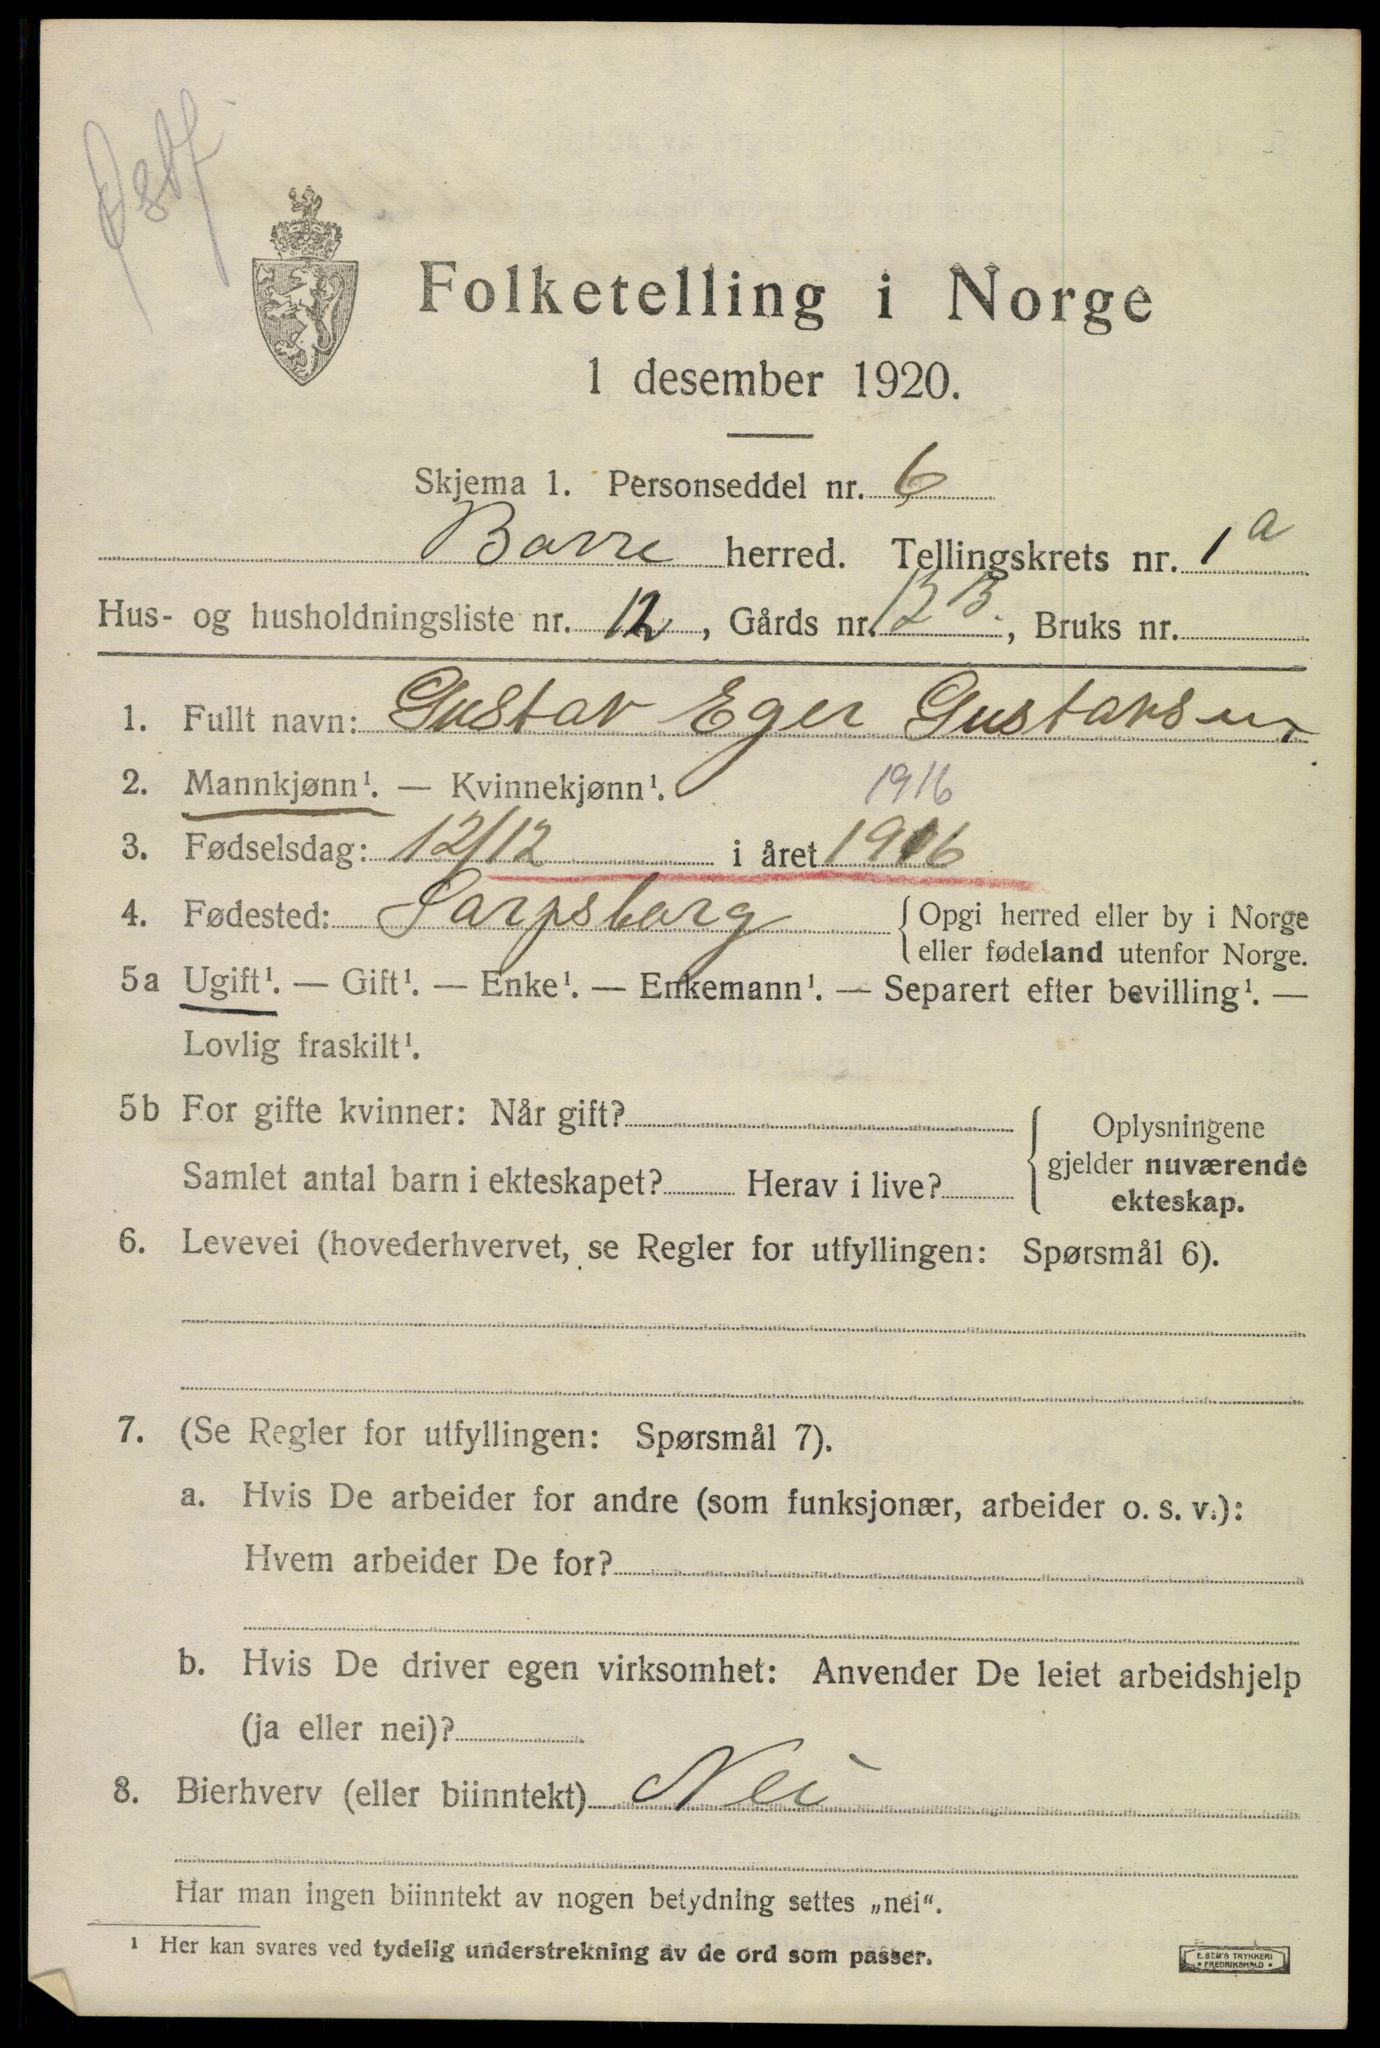 Østf
Folketelling i Norge
1 desember 1920.
Skjema 1. Personseddel nr. 6
Borre herred. Tellingskrets nr. 1a
Hus- og husholdningsliste nr. 12, Gårds nr. 12 B., Bruks nr.
1. Fullt navn: Gustav Eger Gustavsen
2. Mannkjønn¹. — Kvinnekjønn¹. 1916
3. Fødselsdag: 12/12 i året 1916
4. Fødested: Sarpsborg { Opgi herred eller by i Norge
eller fødeland utenfor Norge.
5a Ugift¹. — Gift¹. — Enke¹. — Enkemann¹. — Separert efter bevilling¹. —
Lovlig fraskilt¹.
5b For gifte kvinner: Når gift? { Oplysningene
gjelder nuværende
Samlet antal barn i ekteskapet? Herav i live?
ekteskap.
6. Levevei (hovederhvervet, se Regler for utfyllingen: Spørsmål 6).
7. (Se Regler for utfyllingen: Spørsmål 7).
a. Hvis De arbeider for andre (som funksjonær, arbeider o. s. v.):
Hvem arbeider De for?
b. Hvis De driver egen virksomhet: Anvender De leiet arbeidshjelp
(ja eller nei)?
8. Bierhverv (eller biinntekt) Nei
Har man ingen biinntekt av nogen betydning settes „nei“.
¹ Her kan svares ved tydelig understrekning av de ord som passer.
E. SEM'S TRYKKERI
• FREDRIKSHALD •